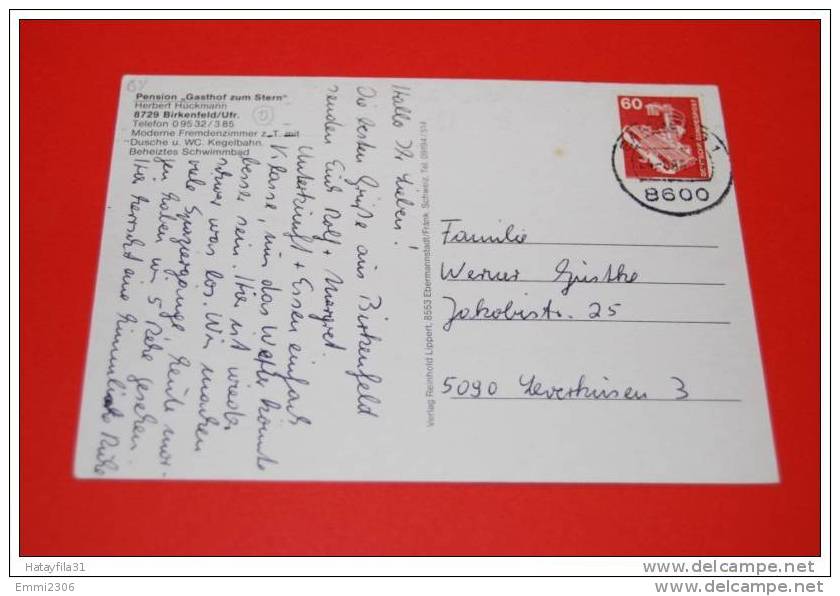 Pension „Gasthof zum Stern"
Herbert Hückmann
8729 Birkenfeld/Ufr.
Telefon 0 95 32 / 3 85
Moderne Fremdenzimmer z. T. mit
Dusche u. WC. Kegelbahn.
Beheiztes Schwimmbad
Hallo Ihr Lieben!
Die besten Grüße aus Birkenfeld
senden Euch Rolf + Margret.
Unterkunft + Essen einfach
Klasse, nur das Wetter könnte
besser sein. Hier ist wieder
schwer was los. Wir machen
viele Spaziergänge, heute mor-
gen haben wir 5 Rehe gesehen
Hier herrscht eine himmlische Ruhe
Verlag Reinhold Lippert, 8553 Ebermannstadt/Fränk. Schweiz, Tel. 09194/514
60
DEUTSCHE BUNDESPOST
8600
Familie
Werner
Jakobistr. 25
5090 Leverkusen 3
Hatayfila31
www.delcampe.net
Emmi2306
www.delcampe.net